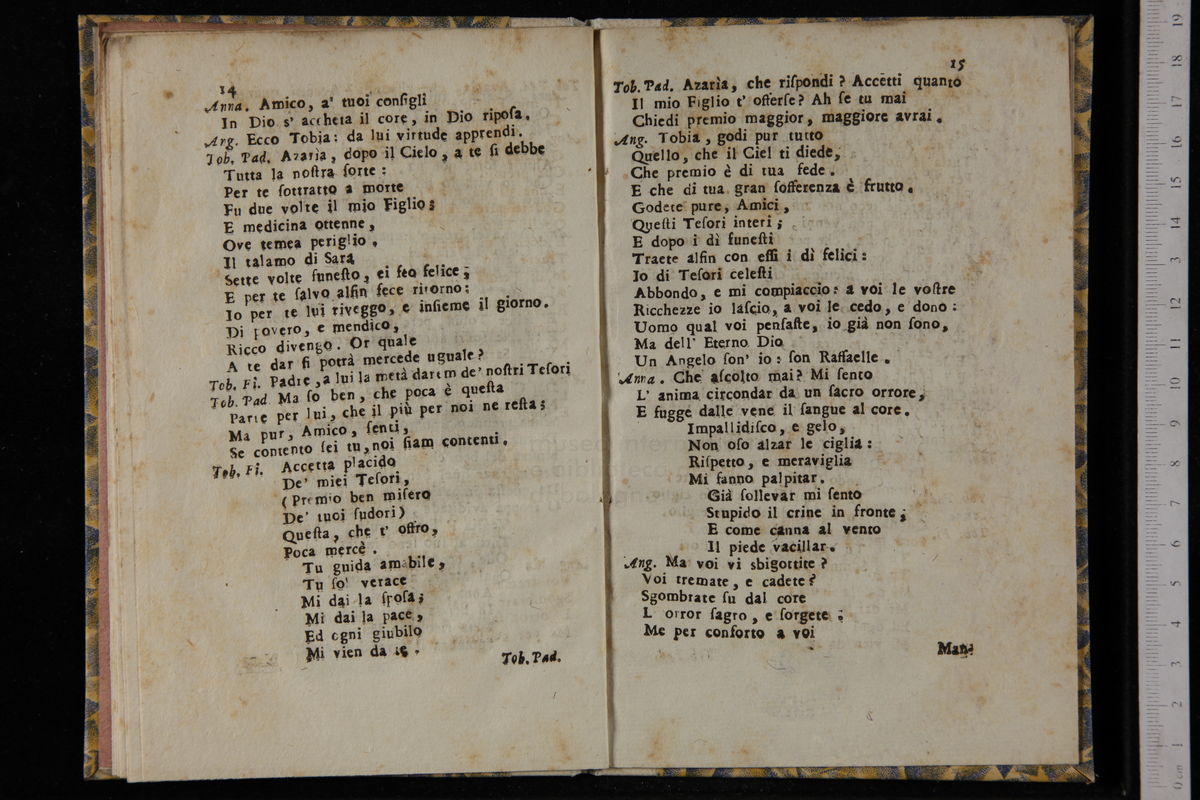 14
Anna. Amico, a' tuoi conſigli
In Dio s' accheta il core, in Dio ripoſa.
Arg. Ecco Tobia: da lui virtude apprendi.
Tob. Pad. Azaria, dopo il Cielo, a te ſi debbe
Tutta la noſtra ſorte:
Per te ſottratto a morte
Fu due volte il mio Figlio;
E medicina ottenne,
Ove temea periglio.
Il talamo di Sara
Sette volte funeſto, ei feo felice;
E per te ſalvo alfin fece ritorno:
Io per te lui riveggo, e inſieme il giorno.
Di povero, e mendico,
Ricco divengo. Or quale
A te dar ſi potrà mercede uguale?
Tob. Fi. Padre, a lui la metà darem de' noſtri Teſori
Tob. Pad Ma ſo ben, che poca è queſta
Parte per lui, che il più per noi ne reſta;
Ma pur, Amico, ſenti,
Se contento ſei tu, noi ſiam contenti.
Tob. Fi. Accetta placido
De' miei Teſori,
(Premio ben miſero
De' tuoi ſudori)
Queſta, che t' offro,
Poca mercè.
Tu guida amabile,
Tu ſo' verace
Mi dai la ſpoſa;
Mi dai la pace,
Ed ogni giubilo
Mi vien da te.
Tob. Pad.
15
Tob. Pad. Azarìa, che riſpondi? Accetti quanto
Il mio Figlio t' offerſe? Ah ſe tu mai
Chiedi premio maggior, maggiore avrai.
Ang. Tobia, godi pur tutto
Quello, che il Ciel ti diede,
Che premio è di tua fede.
E che di tua gran ſofferenza è frutto.
Godete pure, Amici,
Queſti Teſori interi;
E dopo i dì funeſti
Traete alfin con eſſi i dì felici:
Io di Teſori celeſti
Abbondo, e mi compiaccio: a voi le voſtre
Ricchezze io laſcio, a voi le cedo, e dono:
Uomo qual voi penſaſte, io già non ſono,
Ma dell' Eterno Dio
Un Angelo ſon' io: ſon Raffaelle.
Anna. Che aſcolto mai? Mi ſento
L' anima circondar da un ſacro orrore,
E fugge dalle vene il ſangue al core.
Impallidiſco, e gelo,
Non oſo alzar le ciglia:
Riſpetto, e meraviglia
Mi fanno palpitar.
Già ſollevar mi ſento
Stupido il crine in fronte;
E come canna al vento
Il piede vacillar.
Ang. Ma voi vi sbigottite?
Voi tremate, e cadete?
Sgombrate ſu dal core
L orror ſagro, e ſorgete;
Me per conforto a voi